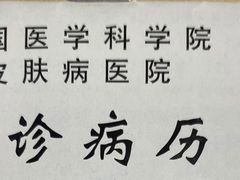 国医学科学院
皮肤病医院
诊病历